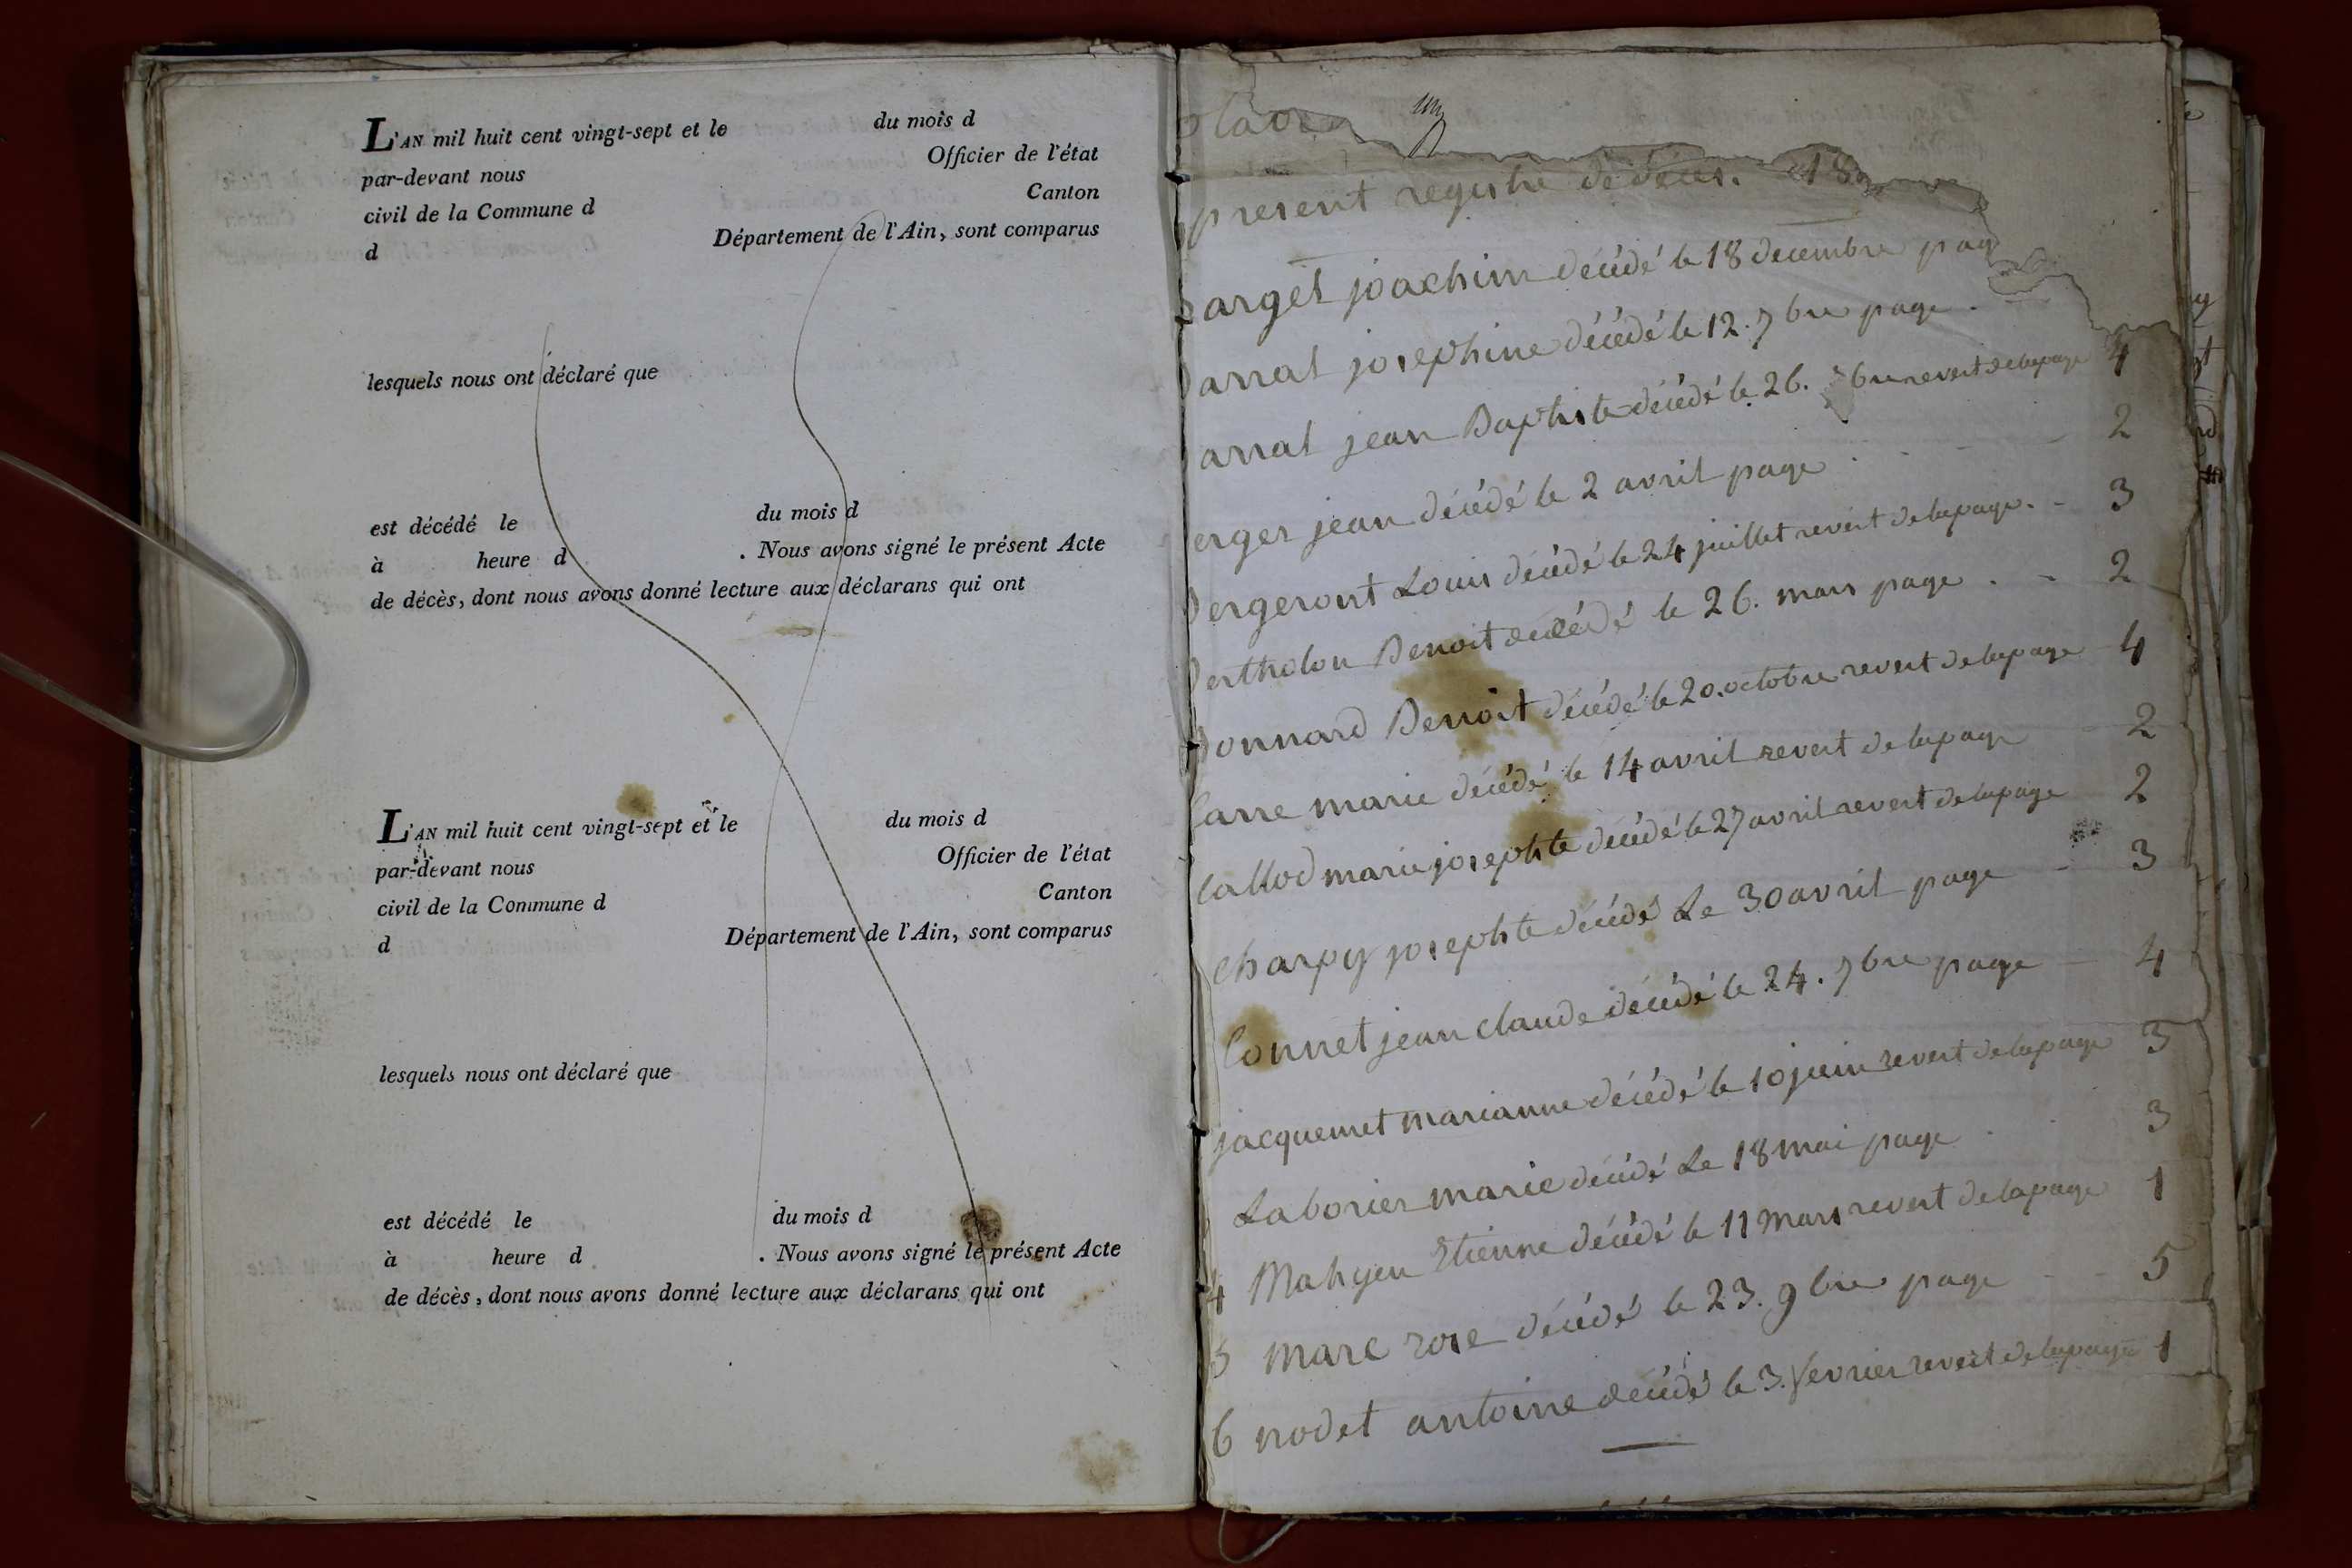 L'AN mil huit cent vingt-sept et le du mois d
par-devant nous Officier de l'état
civil de la Commune d Canton
d Département de l'Ain, sont comparus
lesquels nous ont déclaré que
est décédé le du mois d
à heure d . Nous avons signé le présent Acte
de décès, dont nous avons donné lecture aux déclarans qui ont
L'AN mil huit cent vingt-sept et le du mois d
par-devant nous Officier de l'état
civil de la Commune d Canton
d Département de l'Ain, sont comparus
lesquels nous ont déclaré que
est décédé le du mois d
à heure d . Nous avons signé le présent Acte
de décès, dont nous avons donné lecture aux déclarans qui ont
present registre de déces. 18
arget joachim décédé le 18 decembre pag
arrat josephine décédé le 12. 7bre page .
arrat jean Baptiste décédé le 26. bre revert de lapage 4
erger jean décédé le 2 avril page 2
Bergeront Louis décédé le 24 juillet revert de lapage. - 3
Bertholon Benoit décédé le 26. mars page . - 2
Bonnard Benoit décédé le 20. octobre revert de lapage 4
Carre marie décédé le 14 avril revert de lapage 2
Callod marie josephte décédé le 27 avril revert de lapage 2
charpy josephte décédé Le 30 avril page - 3
Connet jean claude décédé le 24. 7bre page - 4
jacquemet marianne décédé le 10 juin revert de lapage 3
Laborier marie décédé Le 18 mai page 3
4 Mahyeu Etienne décédé le 11 Mars revert de lapage 1
5 marc rose décédé le 23. 9bre page - - 5
6 nodet antoine décédé le 3. fevrier revert de lapage 1